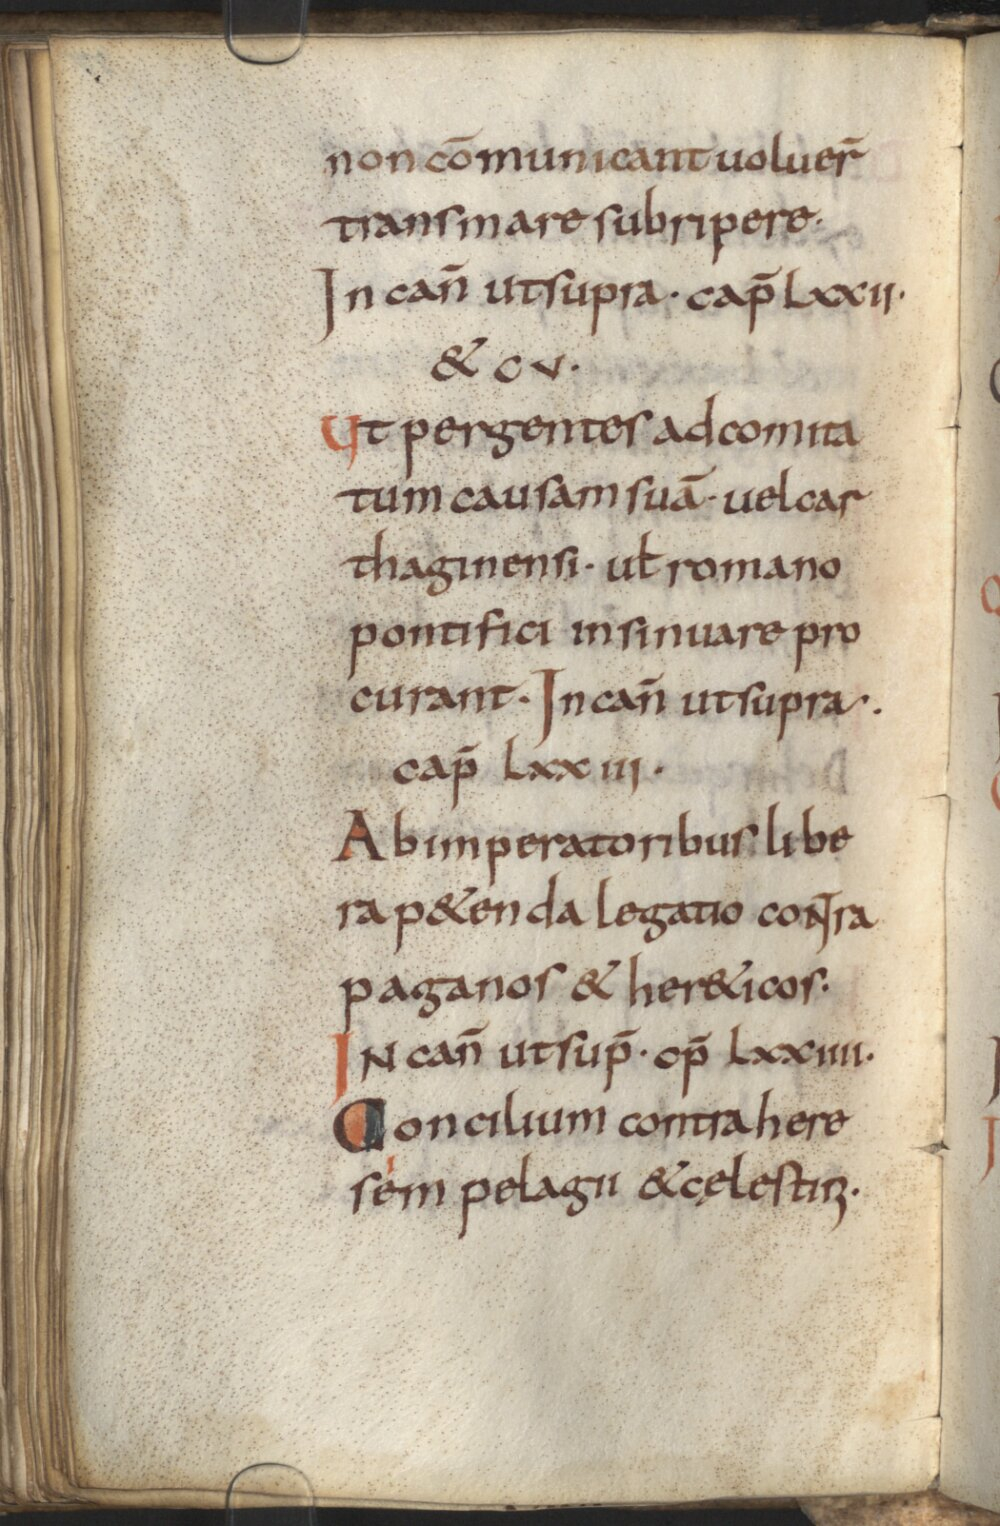 non cōmunicant uoluer̄
transmare subripere·
In can̄ ut supra· cap̄ lxxii·
& cv·
Ut pergentes ad comita
tum causam suā· uel car
thaginensi· uł romano
pontifici insinuare pro
curant· In can̄ ut supra·.
cap̄ lxxiii·
Ab imperatoribus libe
ra p&enda legatio contra
paganos & her&icos·
IN can̄ ut sup̄· cp̄ lxxiiii·
Concilium contra here
sem pelagii & cęlestii·